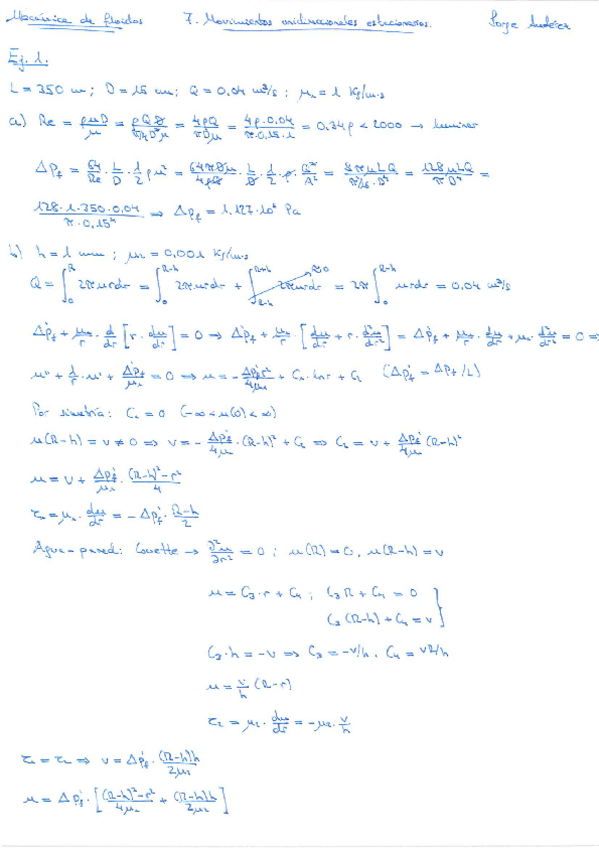 Mecánica de fluidos 7. Movimientos unidireccionales estacionarios. Jorge
Ej. 1.
L = 350 m ; D = 15 cm ; Q = 0.04 m³/s ; μ₁ = 1 Kg/m·s
a) Re = ρuD/μ = ρQD/(π/4 D²μ) = 4ρQ/(πDμ) = 4ρ·0.04/(π·0.15·1) = 0.34ρ < 2000 → laminar
ΔP_f = 64/Re · L/D · 1/2 ρu² = 64πDμ/(4ρQ) · L/D · 1/2 · ρ · Q²/A² = 8πμLQ/(π²/16 · D⁴) = 128μLQ/(πD⁴) =
128·1·350·0.04/(π·0.15⁴) ⇒ ΔP_f = 1.127·10⁶ Pa
b) h = 1 mm ; μ₂ = 0.001 Kg/m·s
Q = ∫₀ᴿ 2πurdr = ∫₀ᴿ⁻ʰ 2πurdr + ∫ 2πurdr ≈0 = 2π ∫₀ᴿ⁻ʰ urdr = 0.04 m³/s
ΔP'_f + μ₁/r · d/dr [r · du/dr] = 0 ⇒ ΔP'_f + μ₁/r · [du/dr + r · d²u/dr²] = ΔP'_f + μ₁/r · du/dr + μ₁ · d²u/dr² = 0 ⇒
u'' + 1/r · u' + ΔP'_f/μ₁ = 0 ⇒ u = - ΔP'_f r²/4μ₁ + C₁·ln r + C₂ (ΔP'_f = ΔP_f/L)
Por simetría: C₁ = 0 (-∞ < u(0) < ∞)
u(R-h) = v ≠ 0 ⇒ v = - ΔP'_f/4μ₁ · (R-h)² + C₂ ⇒ C₂ = v + ΔP'_f/4μ₁ (R-h)²
u = v + ΔP'_f/μ₁ · ((R-h)² - r²)/4
τ₁ = μ₁ · du/dr = - ΔP'_f · (R-h)/2
Agua-pared: Couette → ∂²u/∂r² = 0 ; u(R) = 0, u(R-h) = v
u = C₃·r + C₄ ; C₃R + C₄ = 0
C₃(R-h) + C₄ = v }
C₃·h = -v ⇒ C₃ = -v/h, C₄ = vR/h
u = v/h (R-r)
τ₂ = μ₂ · du/dr = -μ₂ · v/h
τ₁ = τ₂ ⇒ v = ΔP'_f · (R-h)h/2μ₂
u = ΔP'_f · [((R-h)² - r²)/4μ₁ + (R-h)h/2μ₂]